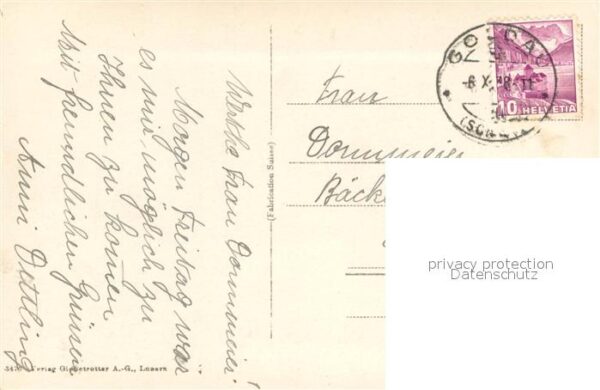 Werthe Frau Dommeier!
Morgen Freitag wär
es mir möglich zu
Ihnen zu komen.
Mit freundlichen Grüssen
Anni Dettling
(Fabrication Suisse)
Verlag Globetrotter A.-G., Luzern
GOLDAU
10 HELVETIA
Frau
Dommeier
Bäcke
privacy protection
Datenschutz